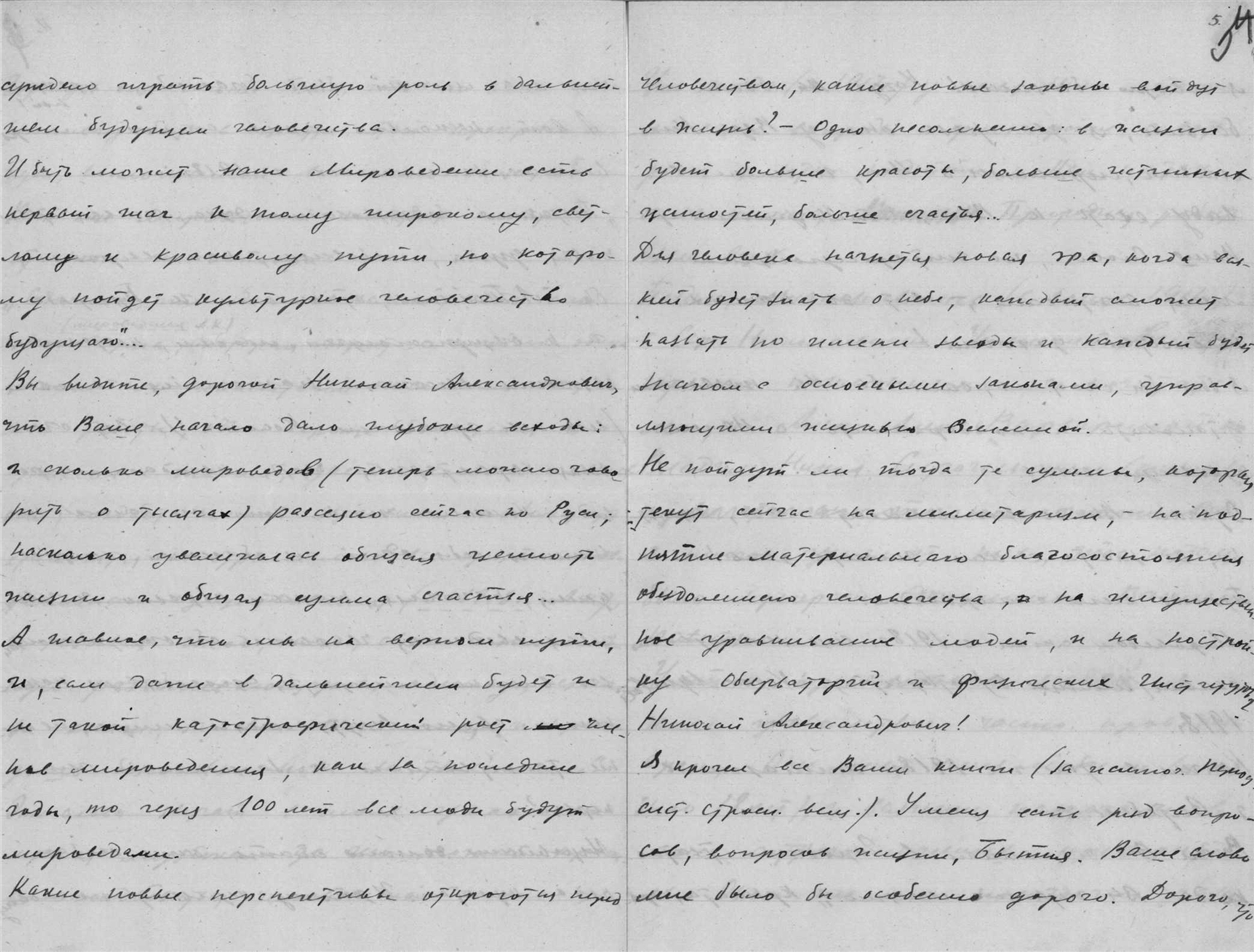 суждено играть большую роль в дальней-
шем будущем человечества.
И быть может наше Мироведение есть
первый шаг к тому широкому, свет-
лому и красивому пути, по которо-
му пойдет культурное человечество
будущаго"...
Вы видите, дорогой Николай Александрович,
что Ваше начало дало глубокие всходы:
и сколько мироведов (теперь можно гово
рить о тысячах) рассеяно сейчас по Руси;
насколько увеличилась общая ценность
жизни и общая сумма счастья...
А главное, что мы на верном пути,
и, если даже в дальнейшем будет и
не такой катастрофический рост чле-
нов мироведения, как за последние
годы, то через 100 лет все люди будут
мироведами.
Какие новые перспективы откроются перед
5.
54
человечеством, какие новые законы войдут
в жизнь? – Одно несомненно: в жизни
будет больше красоты, больше истинных
ценностей, больше счастья...
Для человека начнется новая эра, когда вся-
кий будет знать о небе, каждый сможет
назвать по имени звезды и каждый будет
знаком с основными законами, управ-
ляющими жизнью Вселенной.
Не пойдут ли тогда те суммы, которыя
текут сейчас на милитаризм, – на под-
нятие материальнаго благосостояния
обездоленнаго человечества, на имуществен
ное уравнивание людей, и на построй-
ку Обсерваторий и физических Институтов?
Николай Александрович!
Я прочел все Ваши книги (за исключ. Период.
сист. строен. вещ.). У меня есть ряд вопро-
сов, вопросов жизни, Бытия. Ваше слово
мне было бы особенно дорого. Дорого, что